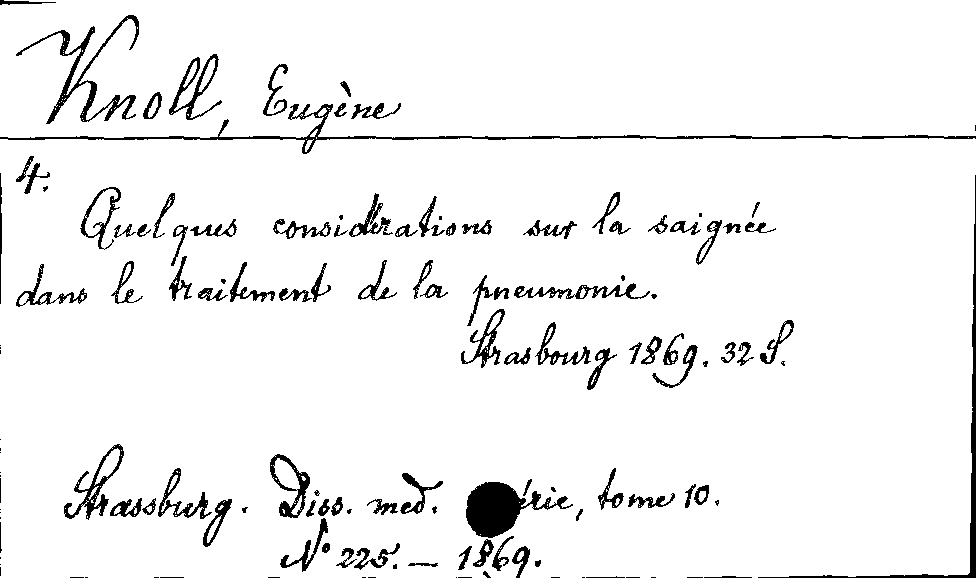 Knoll, Eugène
4.
Quelques considérations sur la saignée
dans le traitement de la pneumonie.
Strasbourg 1869. 32 S.
Strassburg. Diss. med. tome 10.
N° 225. — 1869.